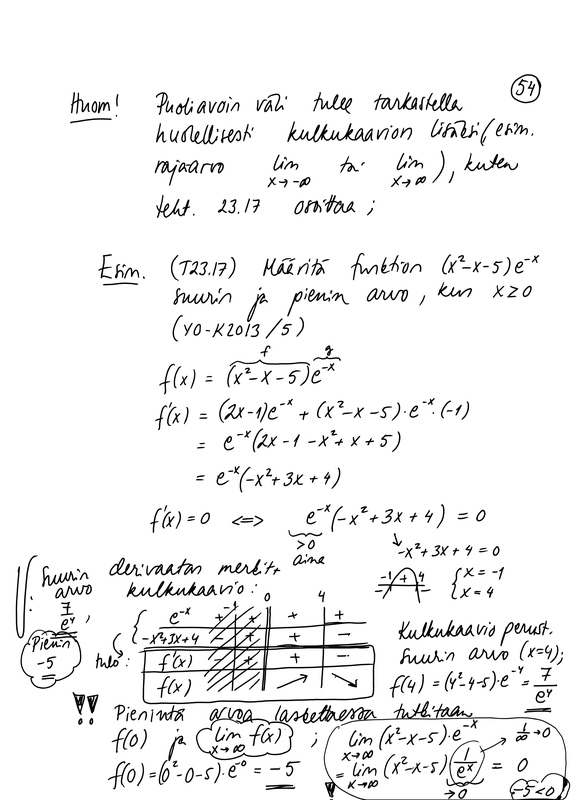 54
Huom! Puoliavoin väli tulee tarkastella
huolellisesti kulkukaavion lisäksi (esim.
rajaarvo lim x→-∞ tai lim x→∞ ), kuten
teht. 23.17 osoittaa ;
Esim. (T23.17) Määritä funktion (x²-x-5)e^-x
suurin ja pienin arvo, kun x≥0
(YO-K2013/5)
f g
f(x) = (x²-x-5)e^-x
f'(x) = (2x-1)e^-x + (x²-x-5)·e^-x·(-1)
= e^-x(2x-1-x²+x+5)
= e^-x(-x²+3x+4)
f'(x)=0 <=> e^-x(-x²+3x+4) = 0
>0 aina
-x²+3x+4=0
-1 + 4
- -
{ x=-1
x=4
derivaatan merkit,
kulkukaavio:
Suurin
arvo
7/e⁴,
Pienin
-5
-1 0 4
e^-x + + + +
-x²+3x+4 - + + -
tulo: f'(x) - + + -
f(x)
Kulkukaavio perust.
suurin arvo (x=4);
f(4)=(4²-4-5)·e^-4=7/e⁴
!! Pienintä arvoa laskettaessa tutkitaan
f(0) ja lim x→∞ f(x) ;
f(0)=(0²-0-5)·e^-0 = -5
lim x→∞ (x²-x-5)·e^-x
1/∞→0
= lim x→∞ (x²-x-5)(1/e^x) = 0
→0
! -5<0